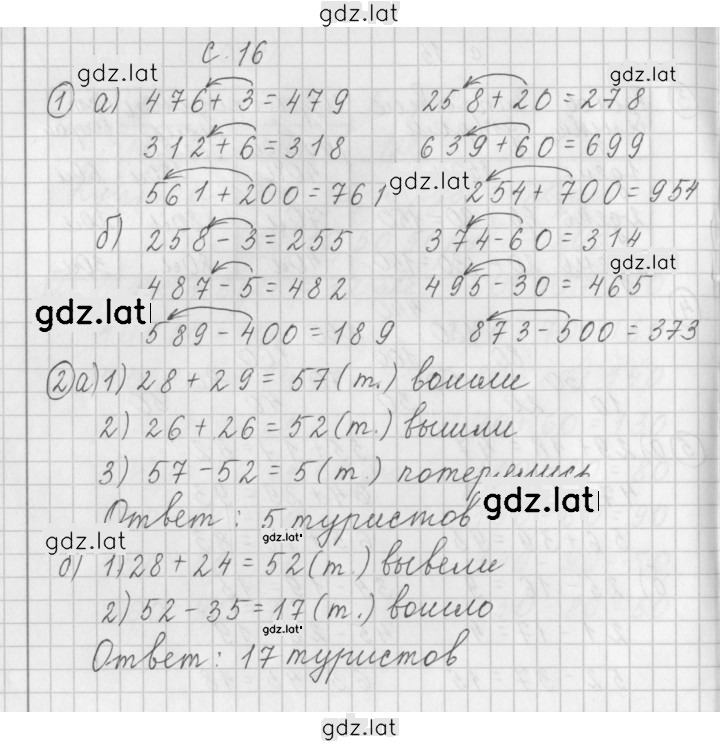 gdz.lat
с. 16
gdz.lat gdz.lat
① а) 476 + 3 = 479 258 + 20 = 278
312 + 6 = 318 639 + 60 = 699
gdz.lat
561 + 200 = 761 254 + 700 = 954
б) 258 - 3 = 255 374 - 60 = 314
gdz.lat
487 - 5 = 482 495 - 30 = 465
gdz.lat
589 - 400 = 189 873 - 500 = 373
② а) 1) 28 + 29 = 57 (т.) вошли
2) 26 + 26 = 52 (т.) вышли
3) 57 - 52 = 5 (т.) потерялись
gdz.lat
Ответ: 5 туристов
gdz.lat gdz.lat
б) 1) 28 + 24 = 52 (т.) вывели
2) 52 - 35 = 17 (т.) вошло
gdz.lat
Ответ: 17 туристов
gdz.lat